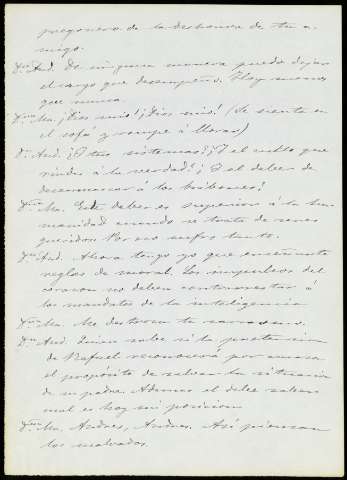 pregonero de la deshonra de tu a-
migo.
Dn. And. De ninguna manera puedo dejar
el cargo que desempeño. Hoy menos
que nunca.
Dña. Ma. ¡Dios mio! ¡Dios mio! (Se sienta en
el sofá y rompe á llorar)
Dn. And. ¿Y tus sistemas? ¿Y el culto que
rindes á la verdad? ¿Y el deber de
desenmascarar á los bribones?
Dña. Ma. Ese deber es superior á la hu-
manidad cuando se trata de seres
queridos. Por eso sufro tanto.
Dn. And. Ahora tengo yo que enseñarte
reglas de moral. Los impulsos del
corazon no deben contrarrestar á
los mandatos de la inteligencia
Dña. Ma. Me destrozas el corazon.
Dn. And. Quien sabe si la pretension
de Rafael reconocerá por causa
el propósito de salvar la situacion
de su padre. Ademas el debe saber
cual es hoy mi posicion
Dña. Ma. Andres, Andres. Asi piensan
los malvados.